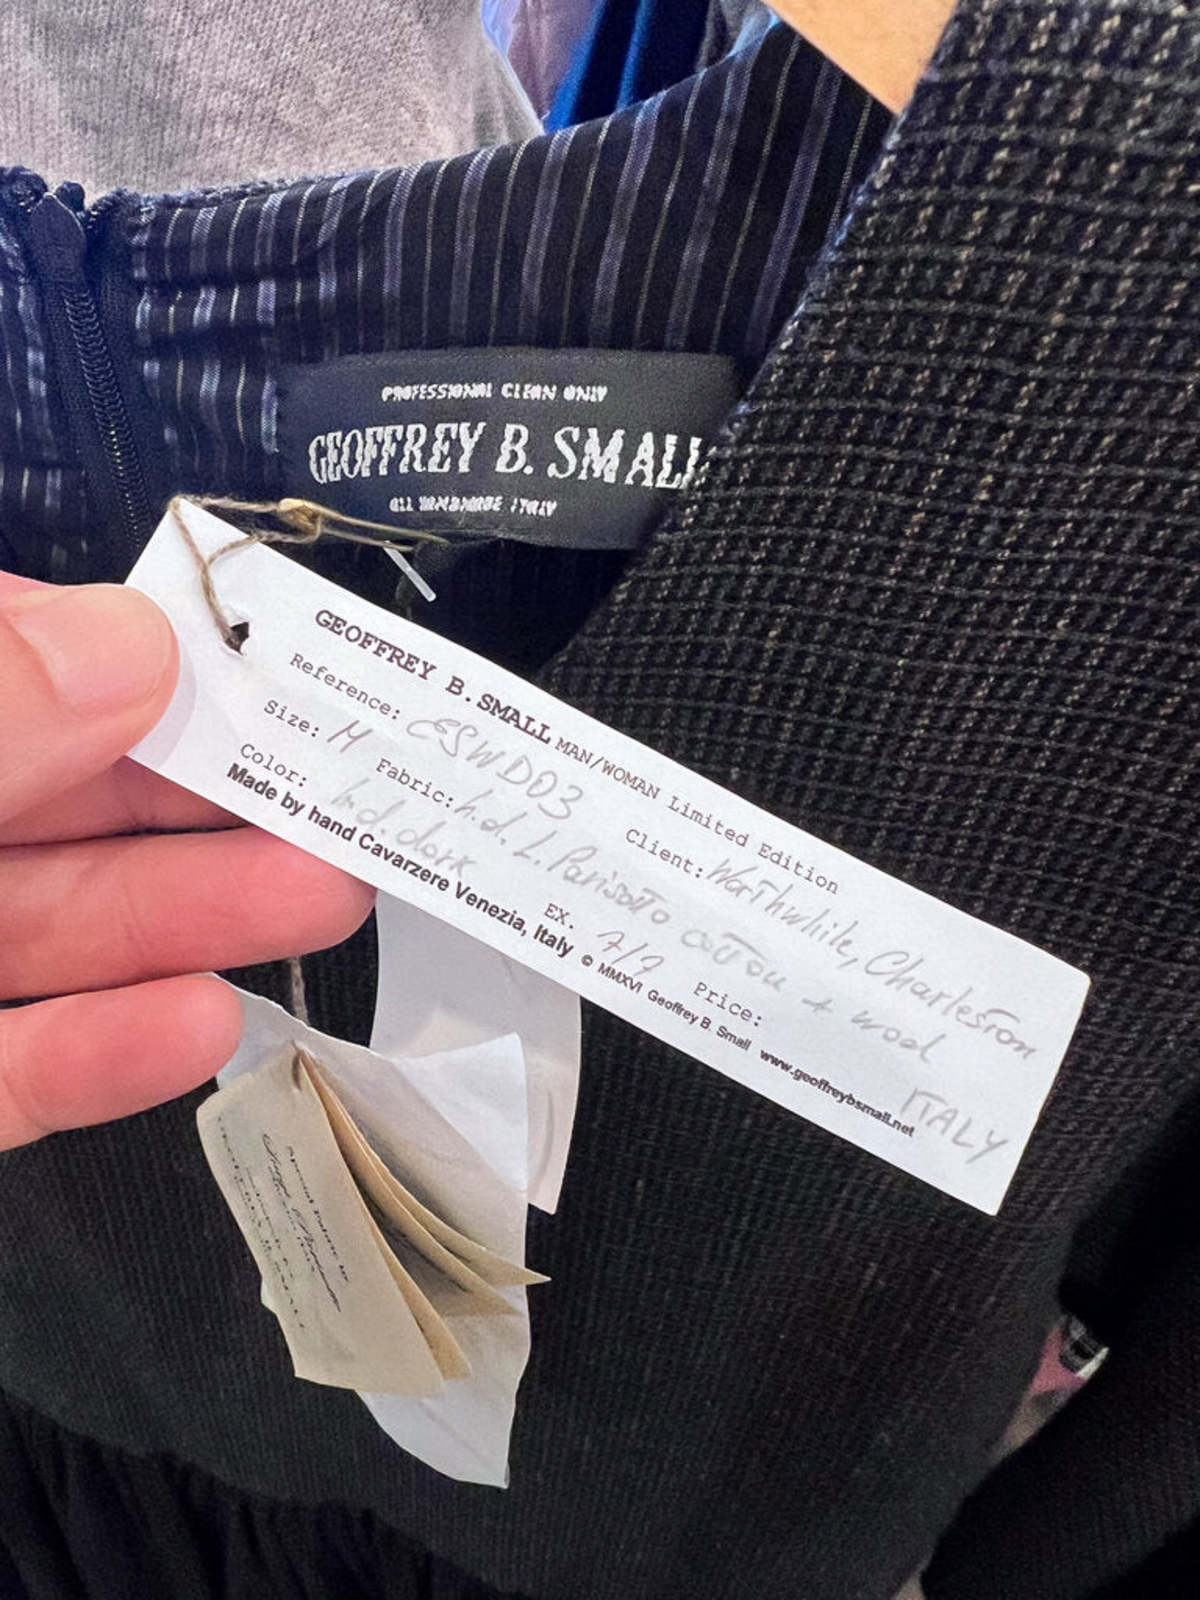 PROFESSIONAL CLEAN ONLY
GEOFFREY B. SMALL
ALL HANDMADE ITALY
GEOFFREY B. SMALL MAN/WOMAN Limited Edition
Reference: ESWD03 Client: Worthwhile, Charleston
Size: M Fabric: h.d. L. Parisotto cotton + wool
Color: h.d. dark EX. 7/7 Price: ITALY
Made by hand Cavarzere Venezia, Italy © MMXVI Geoffrey B. Small www.geoffreybsmall.net